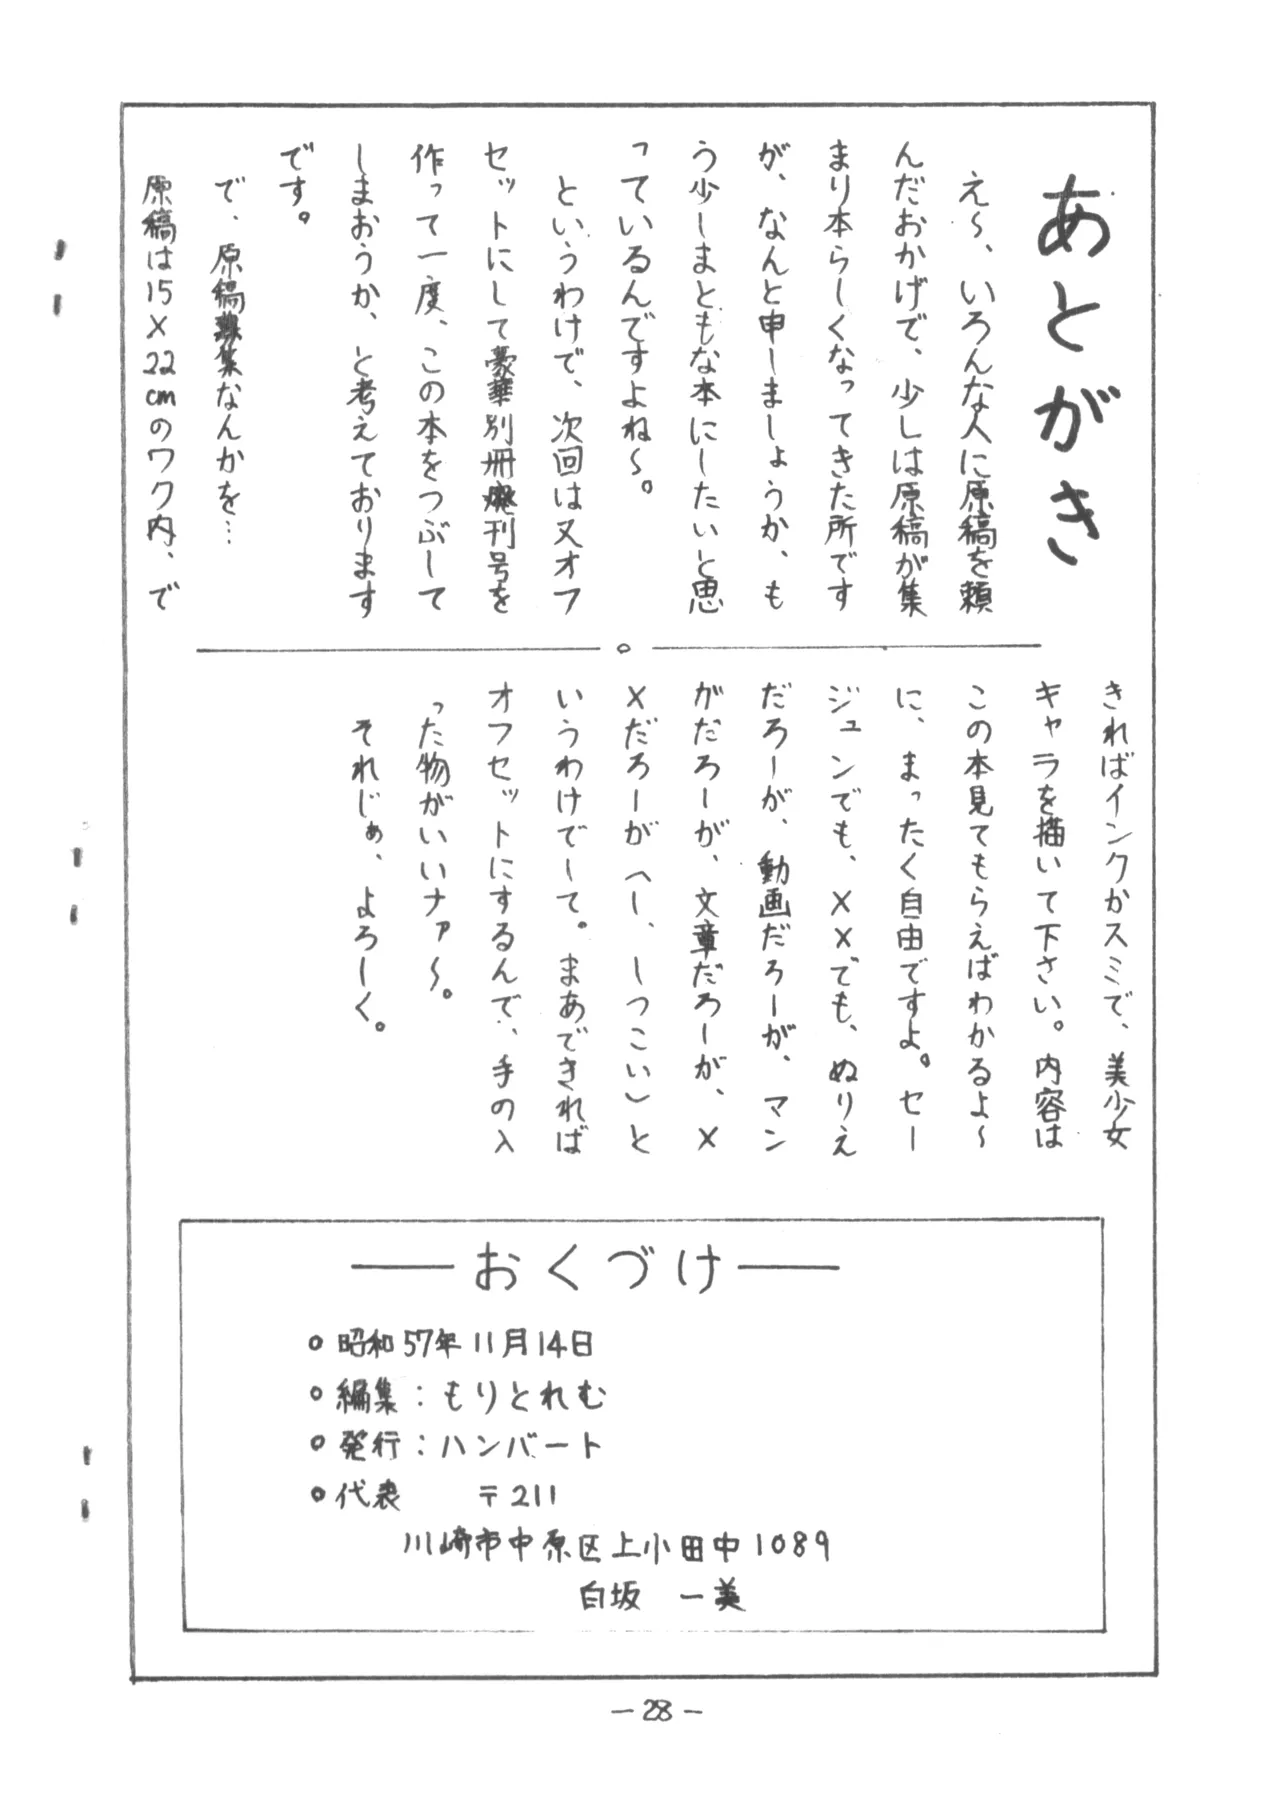 あとがき
え〜、いろんな人に原稿を頼
んだおかげで、少しは原稿が集
まり本らしくなってきた所です
が、なんと申しましょうか、も
う少しまともな本にしたいと思
っているんですよね〜。
というわけで、次回は又オフ
セットにして豪華別冊廃刊号を
作って一度、この本をつぶして
しまおうか、と考えております
です。
で、原稿募集なんかを…
原稿は15×22cmのワク内、で
きればインクかスミで、美少女
キャラを描いて下さい。内容は
この本見てもらえばわかるよ〜
に、まったく自由ですよ。セー
ジュンでも、××でも、ぬりえ
だろーが、動画だろーが、マン
がだろーが、文章だろーが、×
×だろーが(へー、しつこい)と
いうわけでして。まあできれば
オフセットにするんで、手の入
った物がいいナァ〜。
それじぁ、よろーく。
おくづけ
○昭和57年11月14日
○編集：もりとれむ
○発行：ハンバート
○代表 〒211
川崎市中原区上小田中1089
白坂 一美
-28-